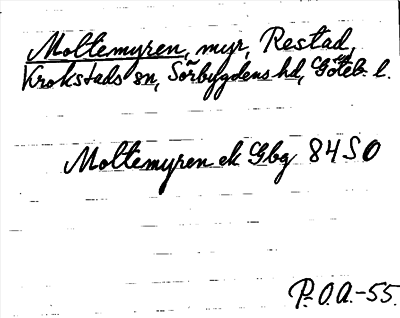 Moltemyren, myr, Restad,
Krokstads sn, Sörbygdens hd, Göteb. l.
Moltemyren ek Gbg 84 SO
P.O.A.-55.